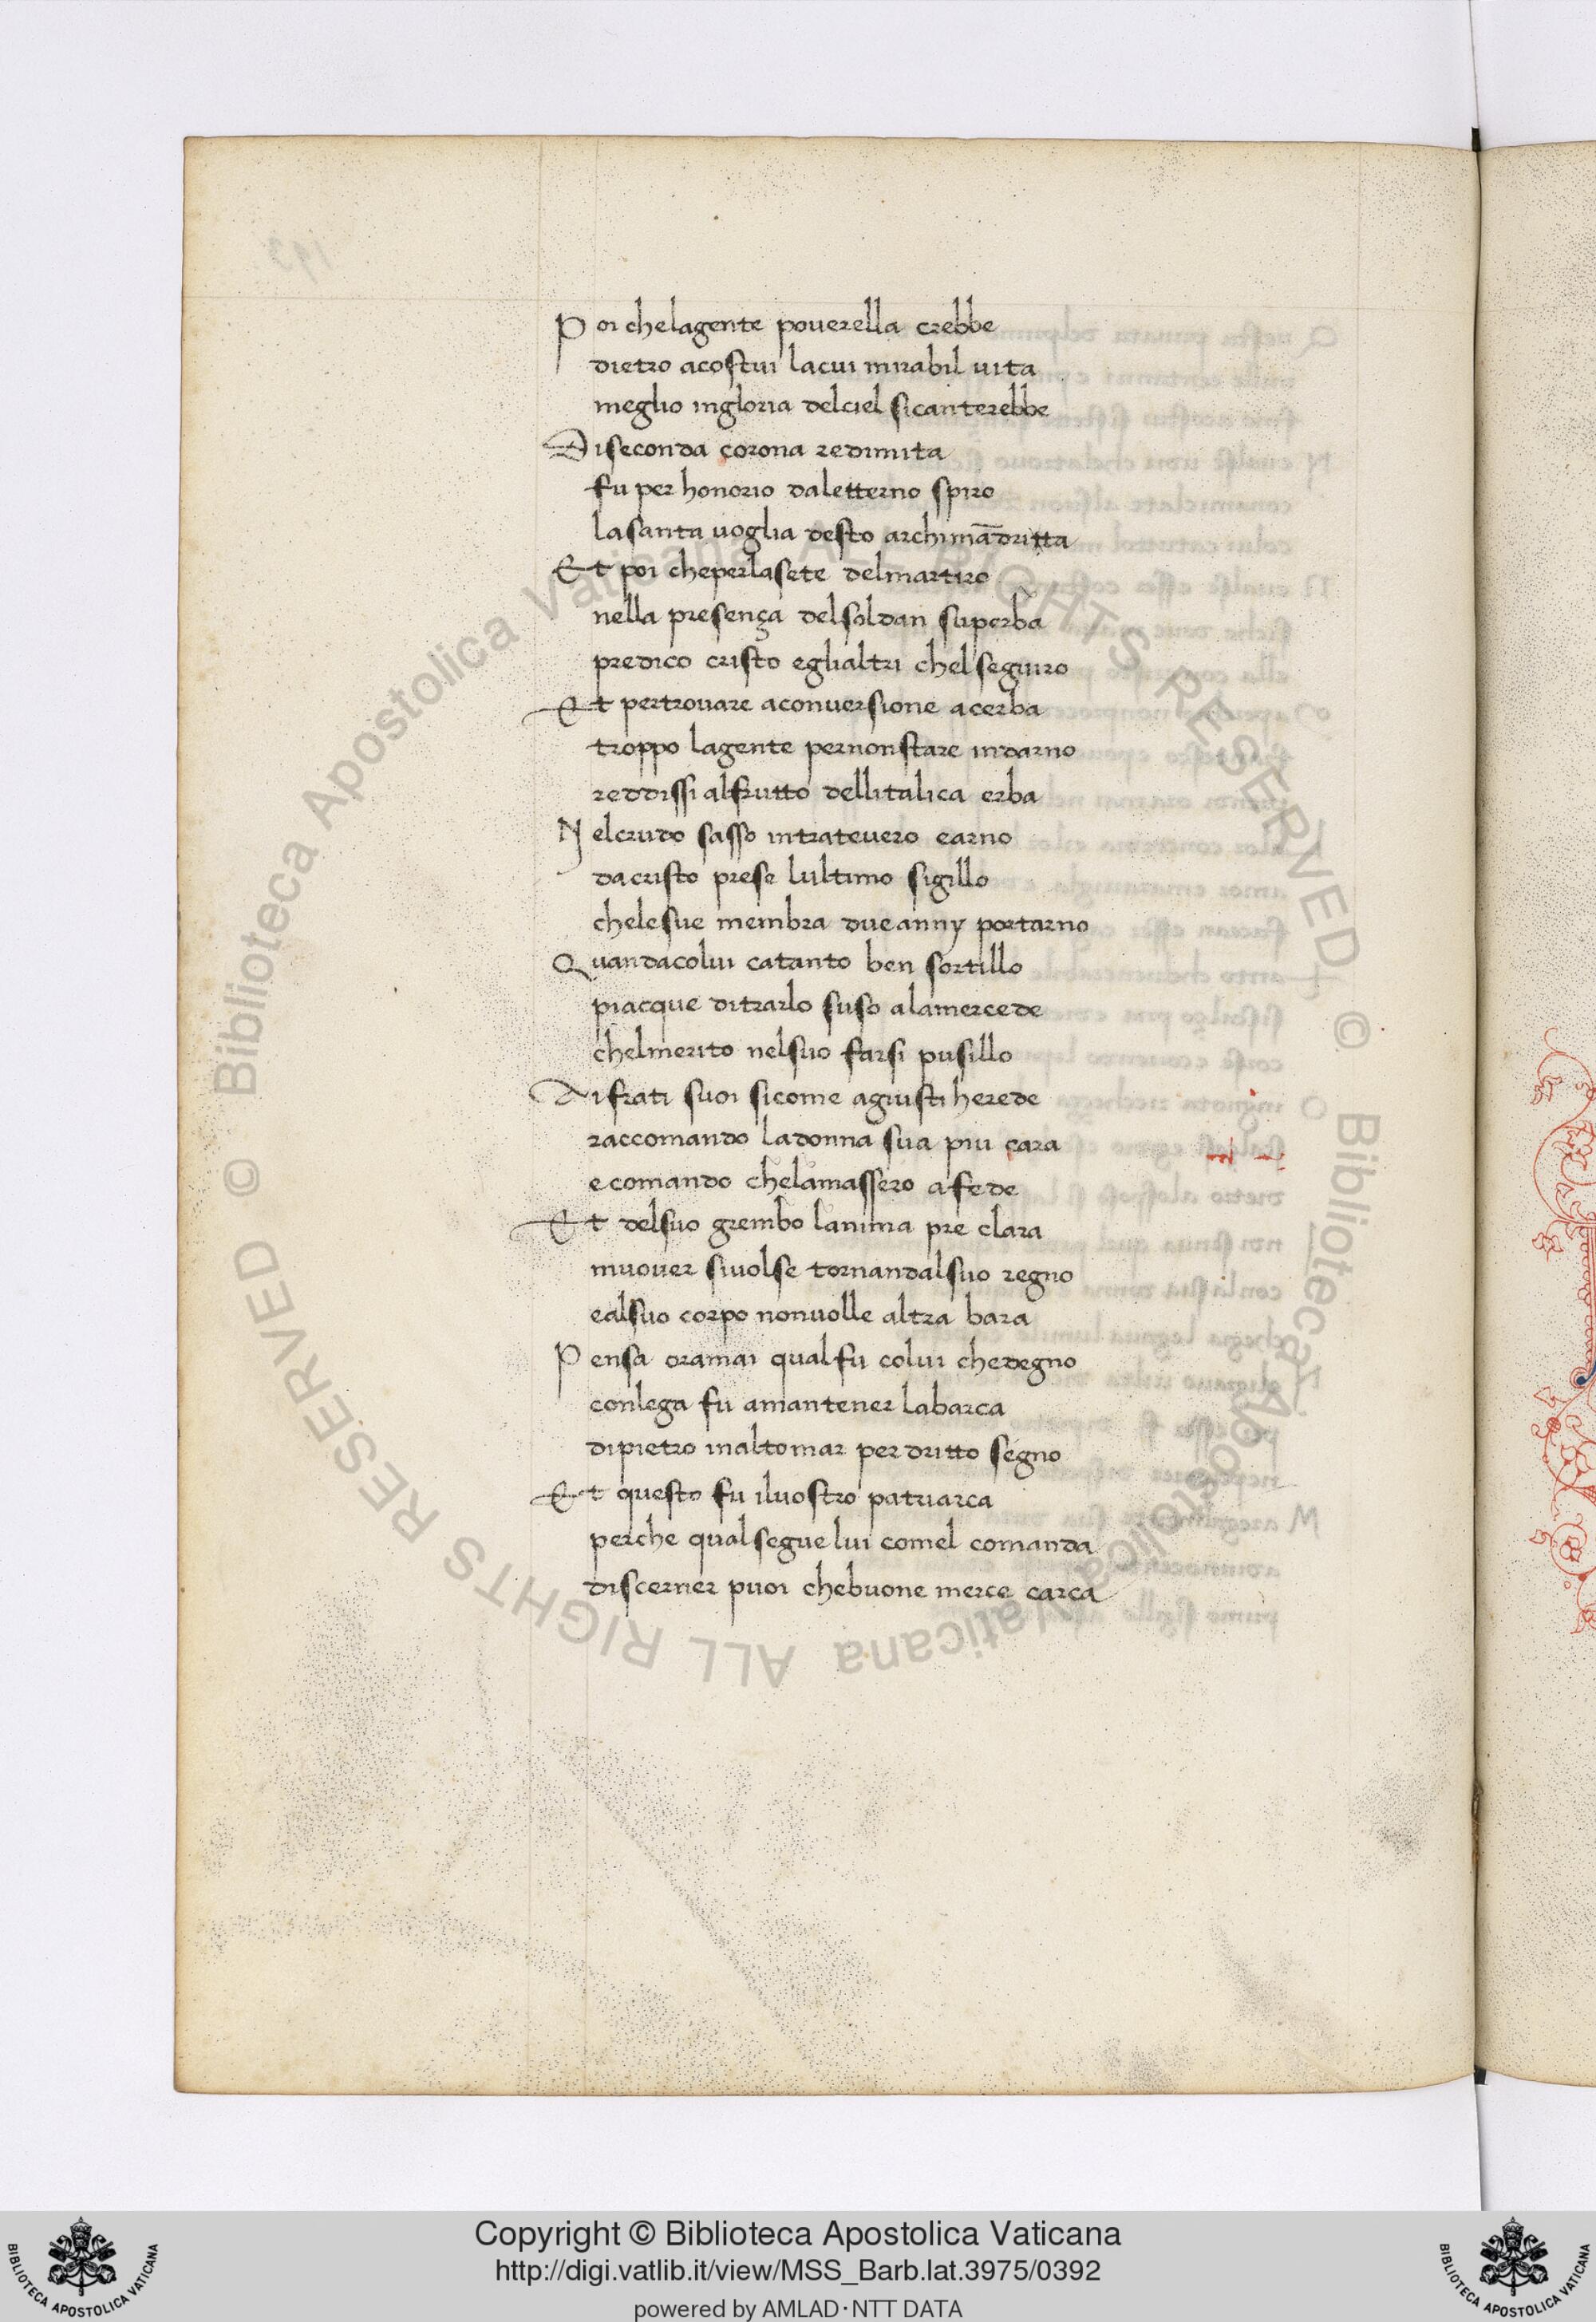 Poi chelagente pouerella crebbe
dietro acostui lacui mirabil uita
meglio ingloria delciel sicanterebbe
Diseconda çorona redimita
fu per honorio daletterno spiro
lasanta uoglia desto archimādritta
Et poi cheperlasete delmartiro
nella presença delsoldan superba
predico cristo eglialtri chel seguiro
Et pertrouare aconuersione acerba
troppo lagente pernonstare indarno
reddissi alfrutto dellitalica erba
Nelcrudo sasso intrateuero earno
dacristo prese lultimo sigillo
chelesue membra dueanny portarno
Quandacolui catanto ben sortillo
piacque ditrarlo suso alamercede
chelmerito nelsuo farsi pusillo
Aifrati suoi sicome agiusti herede
raccomando ladonna sua piu çara
ecomando chelamassero afede
Et delsuo grembo lanima pre clara
muouer siuolse tornandalsuo regno
ealsuo corpo nonuolle altra bara
Pensa oramai qualfu colui chedegno
conlega fu amantener labarca
dipietro inaltomar per dritto segno
Et questo fu iluostro patriarca
perche qualsegue lui comel comanda
discerner puoi chebuone merce carca
© Biblioteca Apostolica Vaticana ALL RIGHTS RESERVED
© Biblioteca Apostolica Vaticana ALL RIGHTS RESERVED
Copyright © Biblioteca Apostolica Vaticana
http://digi.vatlib.it/view/MSS_Barb.lat.3975/0392
powered by AMLAD·NTT DATA
BIBLIOTECA APOSTOLICA VATICANA
BIBLIOTECA APOSTOLICA VATICANA